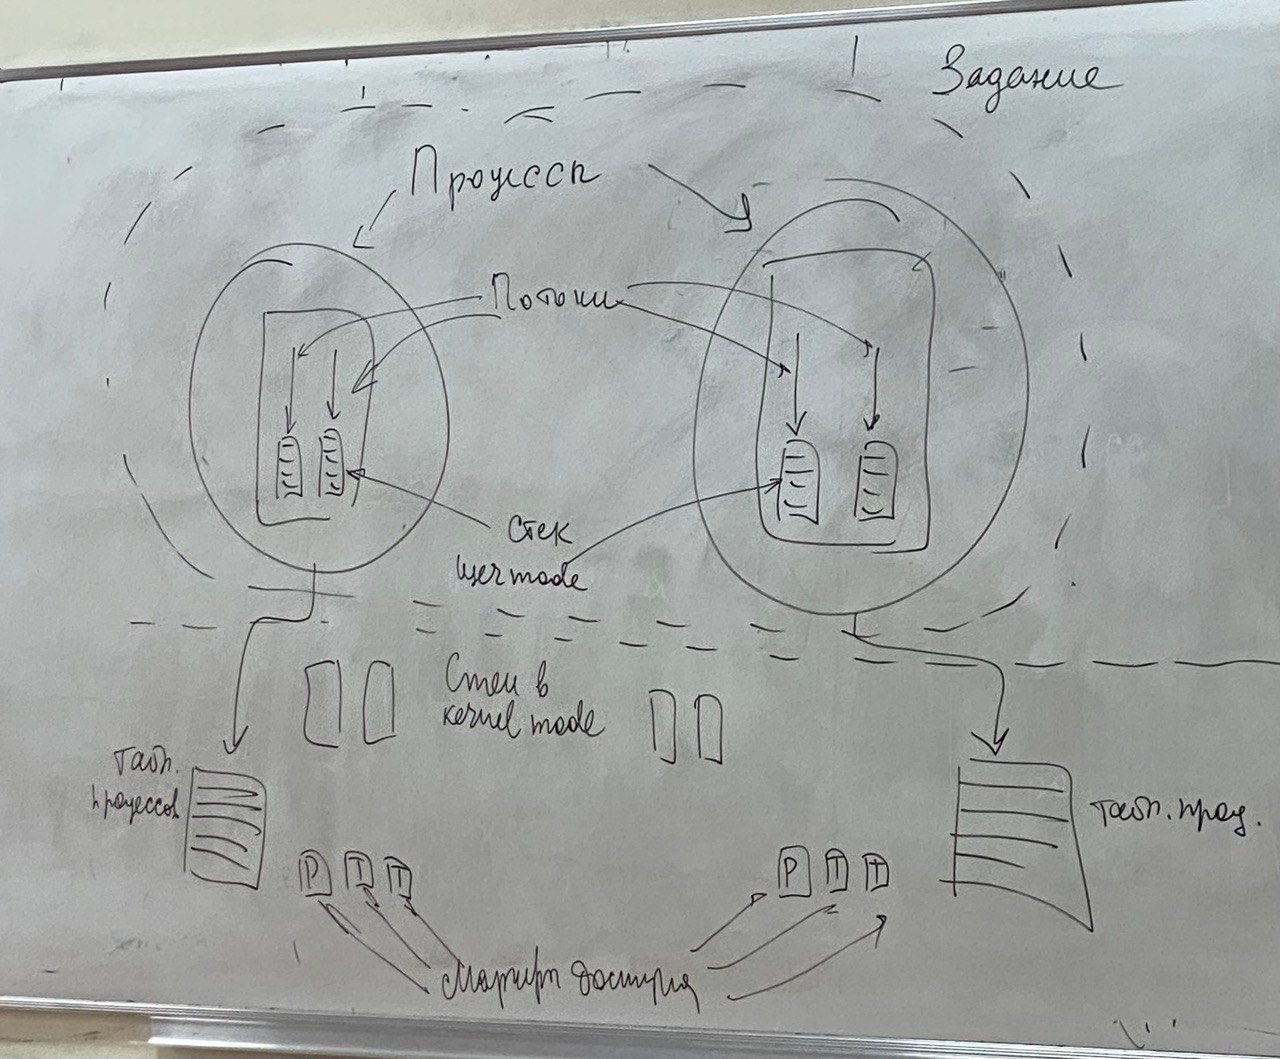 Задание
Процессы
Потоки
Стек
user mode
Стеки в
kernel mode
табл.
процессов
табл. проц.
P T T
P T T
Маркеры доступа